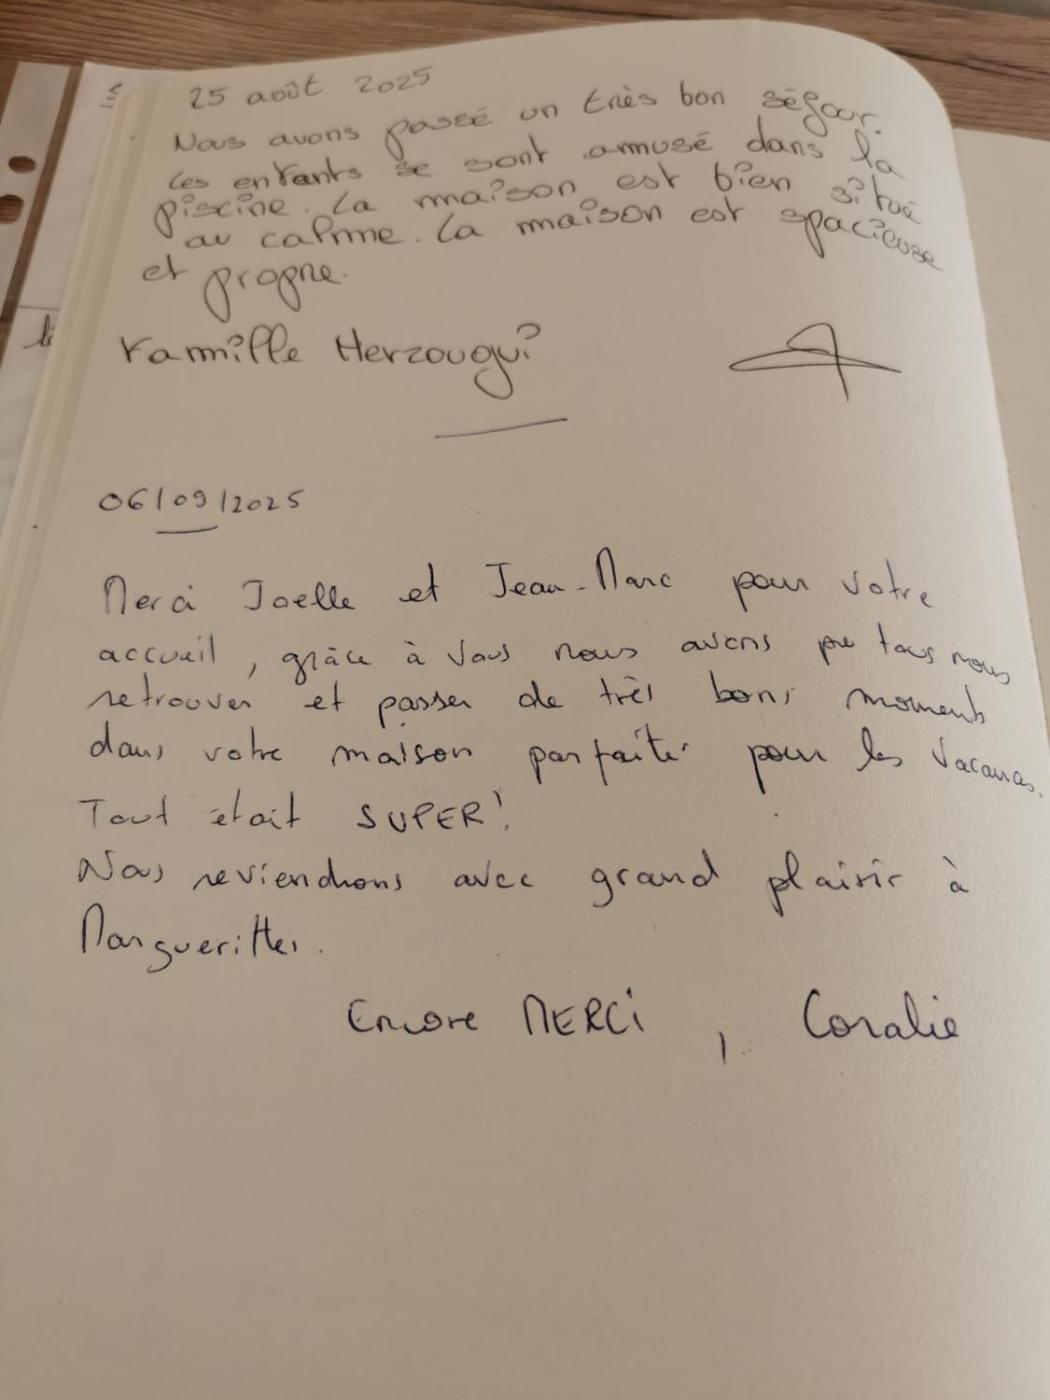 25 août 2025
Nous avons passé un très bon séjour.
Les enfants se sont amusé dans la
piscine. La maison est bien situé
au calme. La maison est spacieuse
et propre.
Famille Herzougui
06/09/2025
Merci Joelle et Jean-Marc pour votre
accueil, grâce à vous nous avons pu tous nous
retrouver et passer de très bons moments
dans votre maison parfaite pour les vacances.
Tout était SUPER!
Nous reviendrons avec grand plaisir à
Marguerittes.
Encore MERCi, Coralie